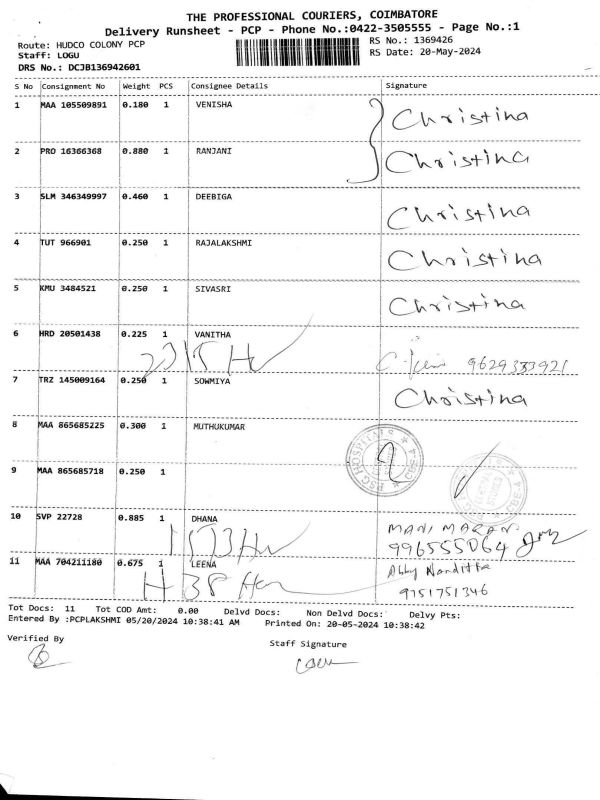 THE PROFESSIONAL COURIERS, COIMBATORE
Delivery Runsheet - PCP - Phone No.:0422-3505555 - Page No.:1
Route: HUDCO COLONY PCP
RS No.: 1369426
Staff: LOGU
RS Date: 20-May-2024
DRS No.: DCJB136942601
S No Consignment No Weight PCS Consignee Details Signature
1 MAA 105509891 0.180 1 VENISHA Christina
2 PRO 16366368 0.880 1 RANJANI Christina
3 SLM 346349997 0.460 1 DEEBIGA Christina
4 TUT 966901 0.250 1 RAJALAKSHMI Christina
5 KMU 3484521 0.250 1 SIVASRI Christina
6 HRD 20501438 0.225 1 VANITHA
9629333921
7 TRZ 145009164 0.250 1 SOWMIYA Christina
8 MAA 865685225 0.300 1 MUTHUKUMAR
PSG HOSPITALS
9 MAA 865685718 0.250 1
10 SVP 22728 0.885 1 DHANA MANI MARAN
996555064
11 MAA 704211180 0.675 1 LEENA Abby Nanditha
H 38
9751751346
Tot Docs: 11 Tot COD Amt: 0.00 Delvd Docs: Non Delvd Docs: Delvy Pts:
Entered By :PCPLAKSHMI 05/20/2024 10:38:41 AM Printed On: 20-05-2024 10:38:42
Verified By
Staff Signature